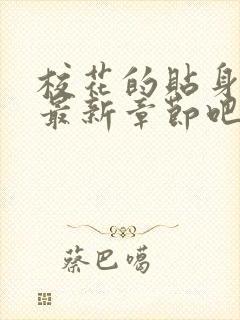 校花的贴身
最新章节吧
蔡巴噶